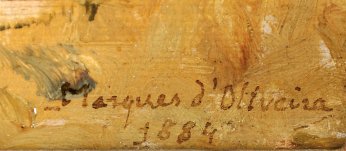 Marques d'Oliveira
1884